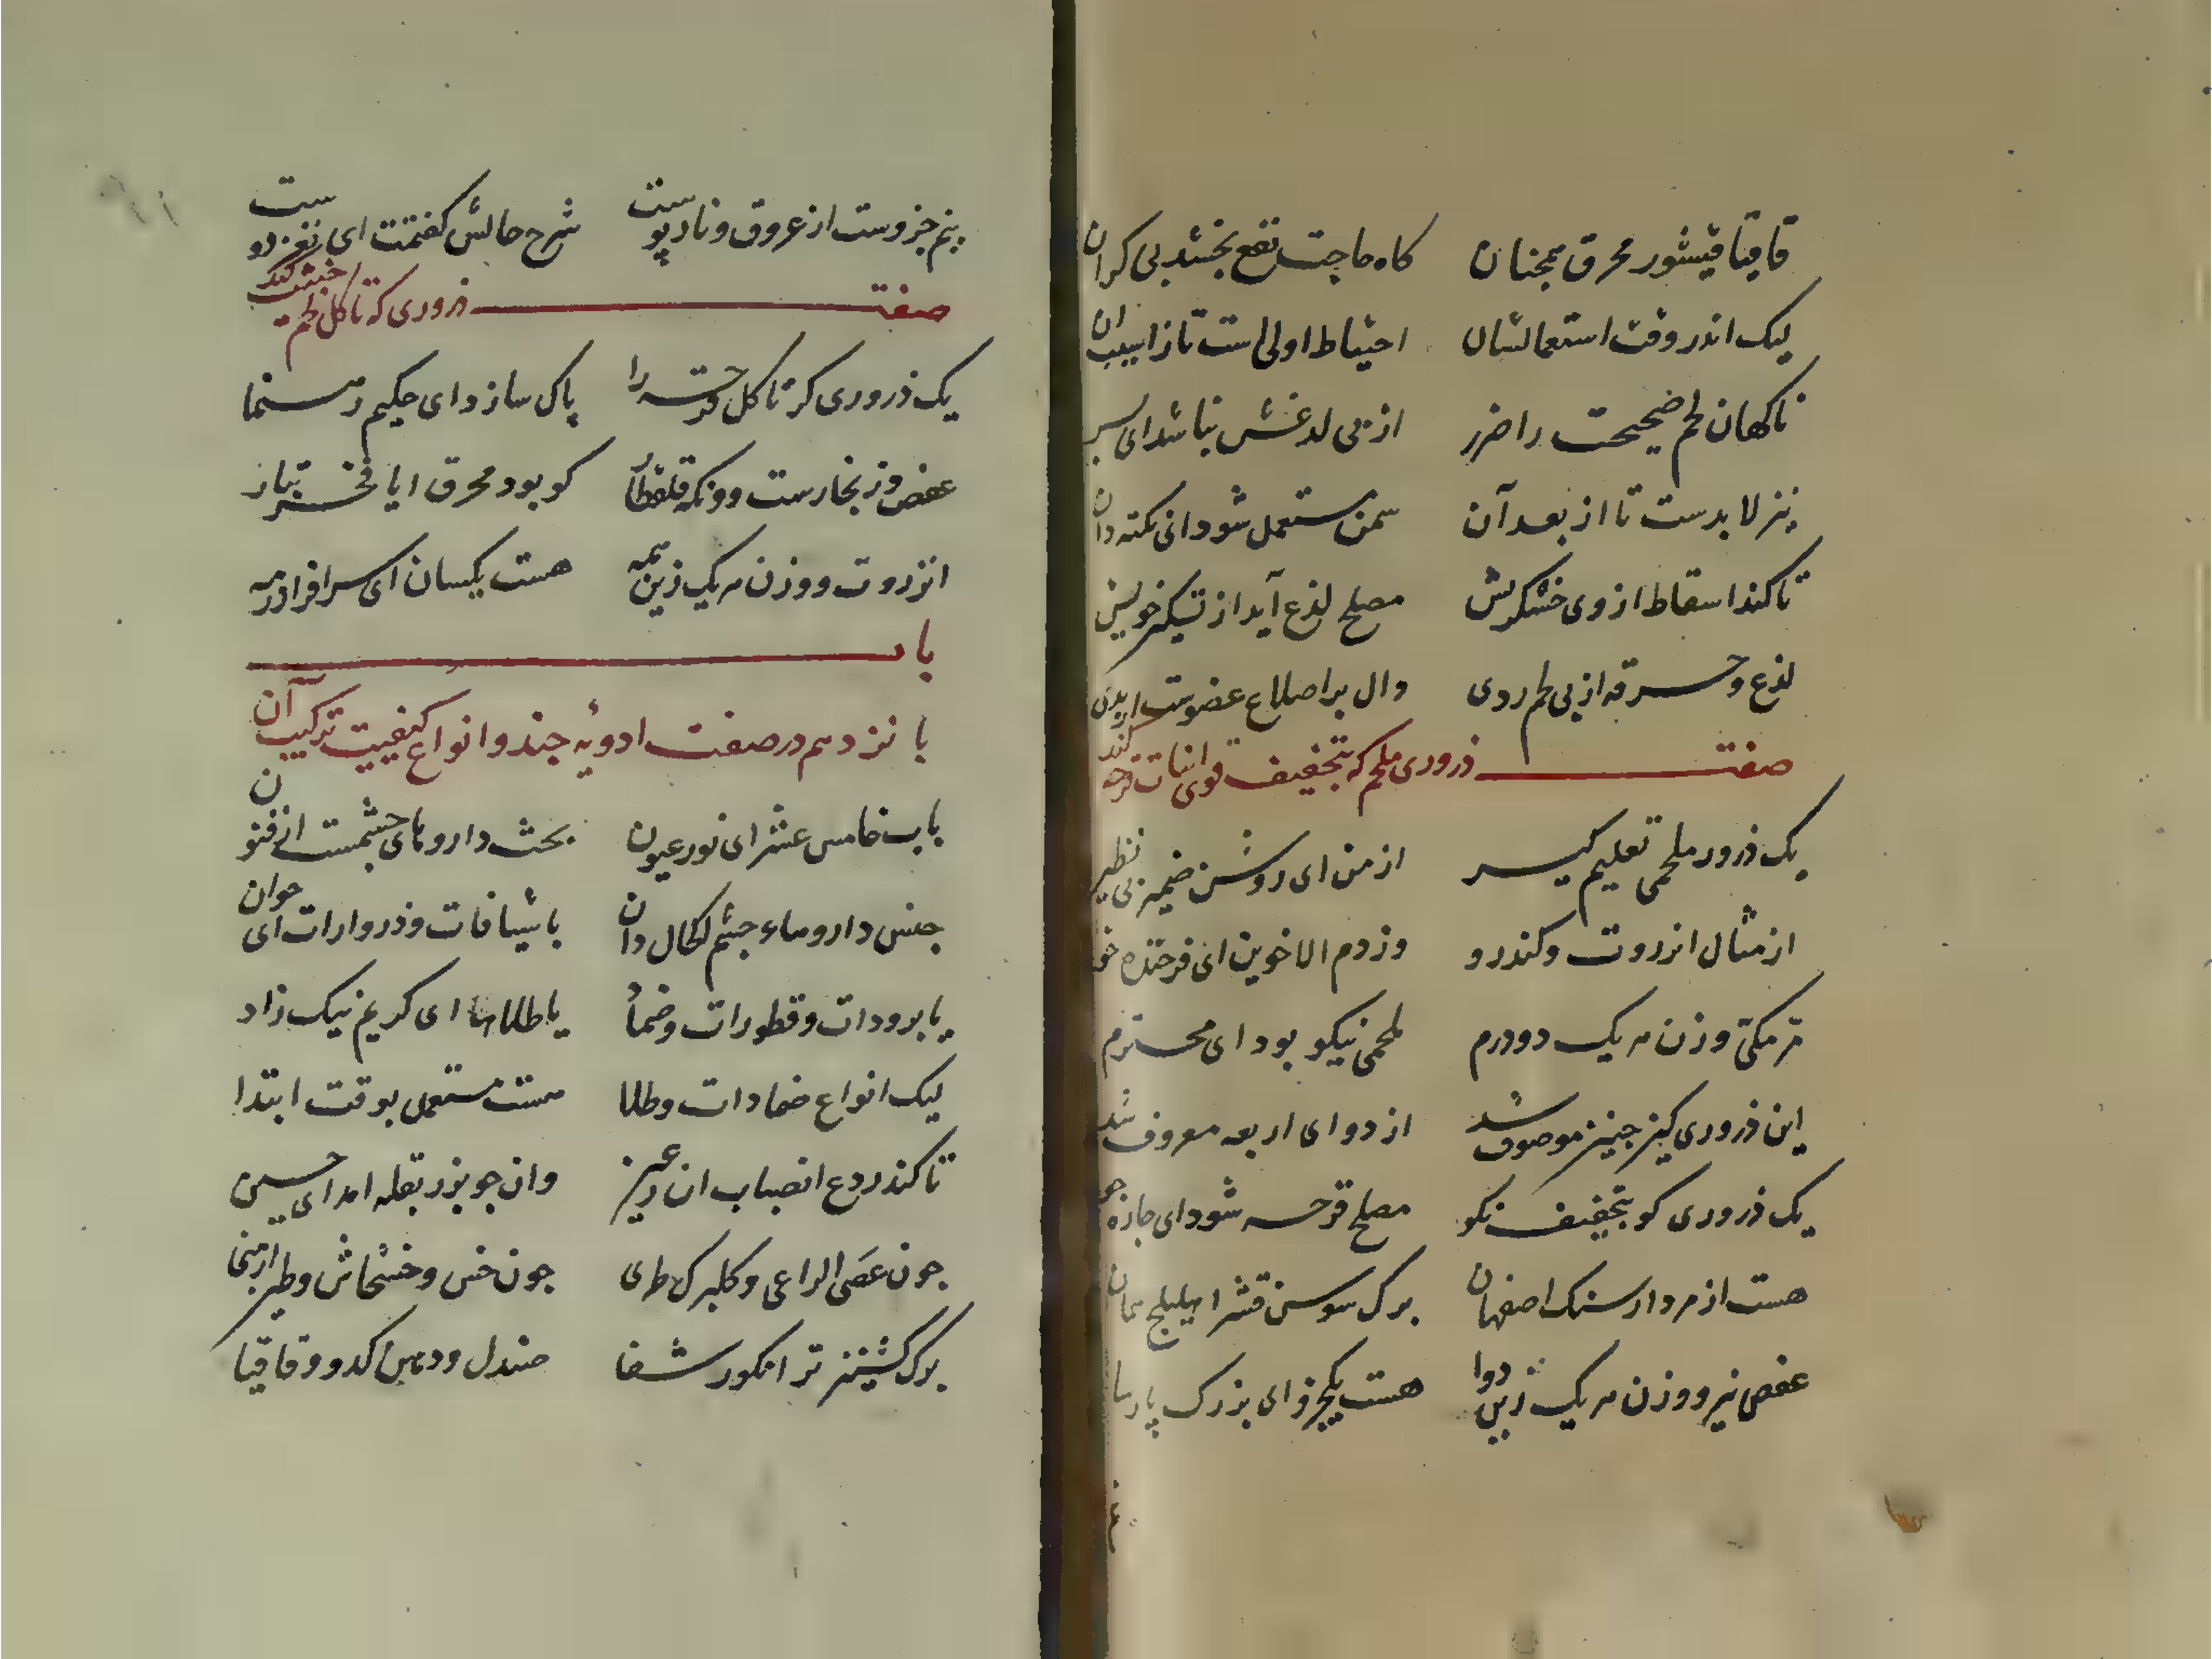 قاقیا قیشور محرق همچنان کاه حاجت نفع بخشد بی کران
لیک اندر وقت استعمالشان احتیاط اولی است تا ز اسیب ان
ناکهان لحم صحیحت را ضرر از پی لدغش نباشد ای پسر
نیز لابدست تا از بعد آن سمن مستعمل شود انی نکته دان
تا کند اسقاط از وی خشکریش مصلح لذع آید از تسکین خویش
لذع و حرقه از پی لحم ردی دال بر اصلاح عضوست
صفت ذروری ملحم که بتجفیف قوی انبات قرحه کند
یک ذرور ملحمی تعلیم کیر از من ای روشن ضمیر بی نظیر
از مثال انزروت و کندرو وز دم الاخوین ای فرخنده خو
مر مکی وزن هر یک دو درم ملحمی نیکو بود ای محترم
این ذروری کین جنین موصوف شد از دوای اربعه معروف شد
یک ذروری کو بتجفیف نکو مصلح قرحه شود ای جاره جو
هست از مردارسنک اصفهان برک سوسن قشر اهلیلج همان
عفص نیز و وزن هر یک زین دوا هست یکجزو ای بزرک پارسا
پنم جزوست از عروق و نارپوست شرح حالش کفتمت ای نغز دوست
صفت ذروری که تاکل لحم خبیث کند
یک ذروری کز تاکل قرحه را پاک سازد ای حکیم رهنما
عفص و زنجارست وونکه قلقطار کو بود محرق ایا فخر تبار
انزروت و وزن هر یک زین همه هست یکسان ای سرافراز رمه
باب
پانزدهم در صفت ادویه جند و انواع کیفیت ترکیب آن
باب خامس عشر ای نور عیون بحث داروهای جشمست از فنون
جنس داروهاء جشم لکحال دان یا شیافات و ذرورات ای جوان
یا برودات و قطورات و ضماد یا طلاها ای کریم نیک زاد
لیک انواع ضمادات و طلا هست مستعمل بوقت ابتدا
تا کند ردع انصباب ان وان جو بزر بقله امد ای حسین
جون عصی الراعی و کلبرک طری جون خس و خشخاش و طین ارمنی
برک کشنیز تر انکور شفا صندل و دهن کدو و قاقیا